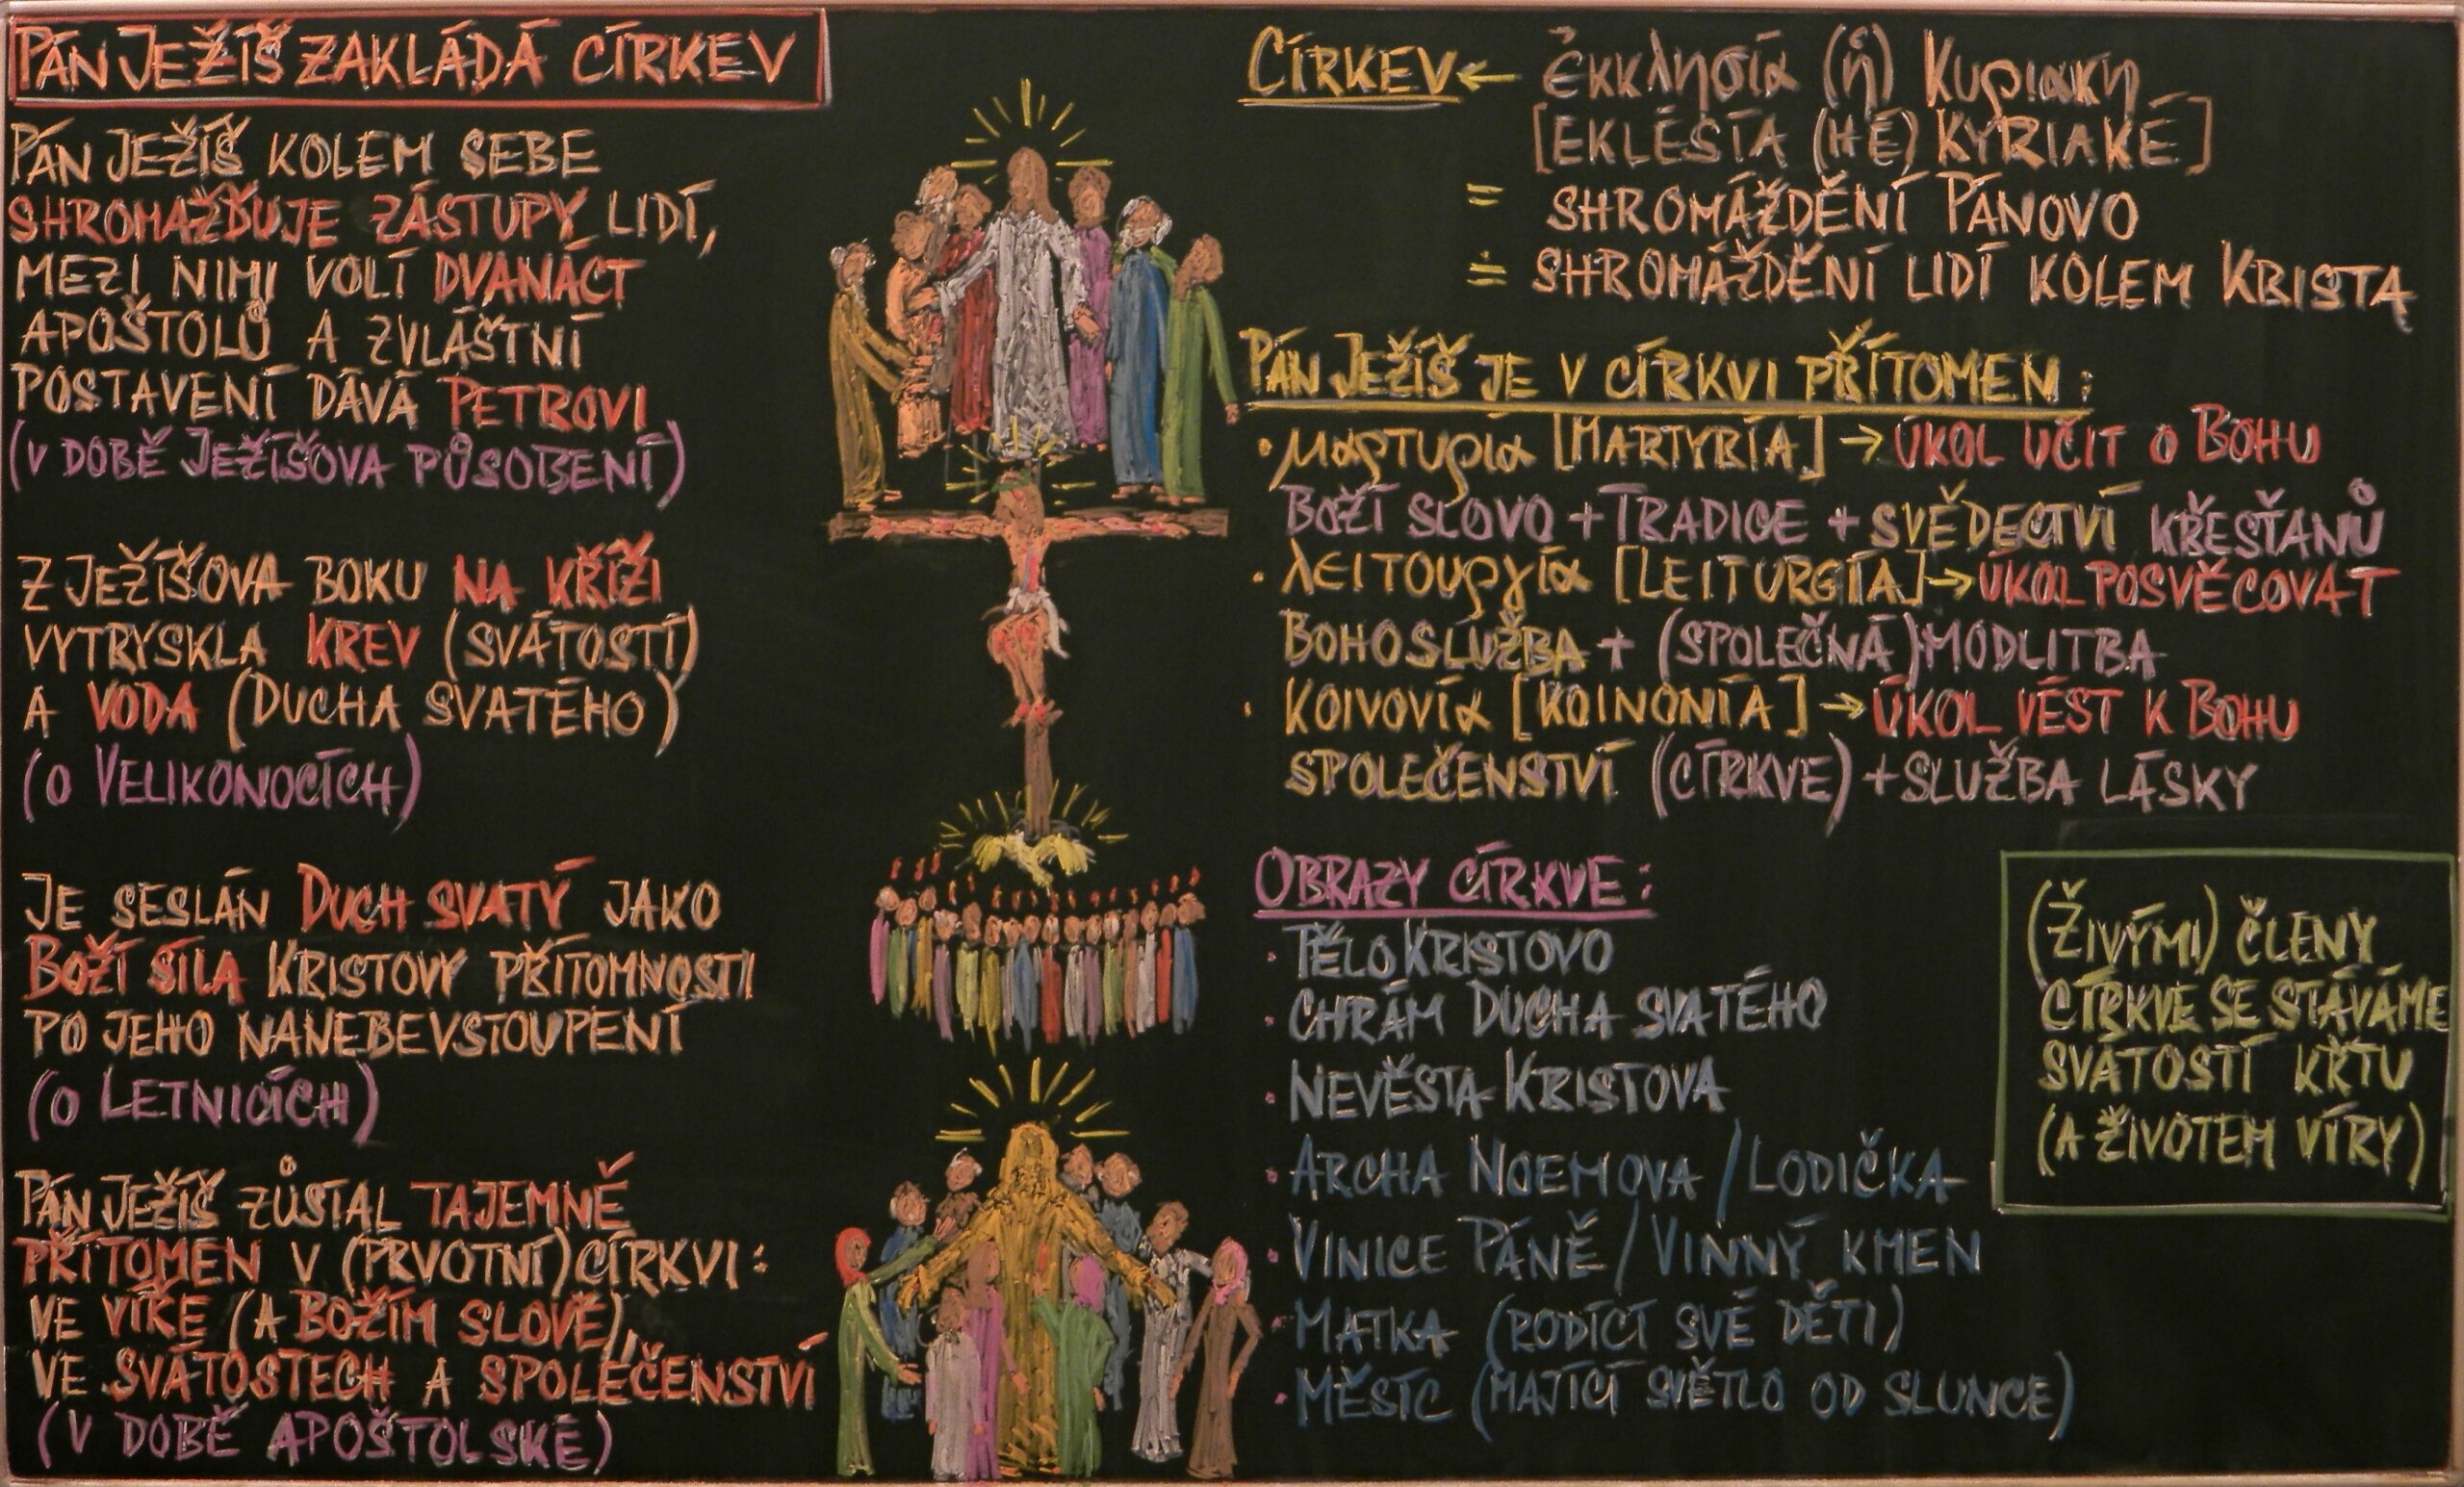 PÁN JEŽÍŠ ZAKLÁDÁ CÍRKEV
PÁN JEŽÍŠ KOLEM SEBE
SHROMAŽĎUJE ZÁSTUPY LIDÍ,
MEZI NIMI VOLÍ DVANÁCT
APOŠTOLŮ A ZVLÁŠTNÍ
POSTAVENÍ DÁVÁ PETROVI
(V DOBĚ JEŽÍŠOVA PŮSOBENÍ)
Z JEŽÍŠOVA BOKU NA KŘÍŽI
VYTRYSKLA KREV (SVÁTOSTÍ)
A VODA (DUCHA SVATÉHO)
(O VELIKONOCÍCH)
JE SESLÁN DUCH SVATÝ JAKO
BOŽÍ SÍLA KRISTOVY PŘÍTOMNOSTI
PO JEHO NANEBEVSTOUPENÍ
(O LETNICÍCH)
PÁN JEŽÍŠ ZŮSTAL TAJEMNĚ
PŘÍTOMEN V (PRVOTNÍ) CÍRKVI:
VE VÍŘE (A BOŽÍM SLOVĚ),
VE SVÁTOSTECH A SPOLEČENSTVÍ
(V DOBĚ APOŠTOLSKÉ)
CÍRKEV ← ἐκκλησία (ἡ) Κυριακη
[EKLÉSÍA (HÉ) KYRIAKÉ]
= SHROMÁŽDĚNÍ PÁNOVO
≐ SHROMÁŽDĚNÍ LIDÍ KOLEM KRISTA
PÁN JEŽÍŠ JE V CÍRKVI PŘÍTOMEN:
• μαρτυρία [MARTYRÍA] → ÚKOL UČIT O BOHU
BOŽÍ SLOVO + TRADICE + SVĚDECTVÍ KŘESŤANŮ
• λειτουργία [LEITURGÍA] → ÚKOL POSVĚCOVAT
BOHOSLUŽBA + (SPOLEČNÁ) MODLITBA
• κοινονία [KOINONÍA] → ÚKOL VÉST K BOHU
SPOLEČENSTVÍ (CÍRKVE) + SLUŽBA LÁSKY
OBRAZY CÍRKVE:
• TĚLO KRISTOVO
• CHRÁM DUCHA SVATÉHO
• NEVĚSTA KRISTOVA
• ARCHA NOEMOVA / LODIČKA
• VINICE PÁNĚ / VINNÝ KMEN
• MATKA (RODÍCÍ SVÉ DĚTI)
• MĚSÍC (MAJÍCÍ SVĚTLO OD SLUNCE)
(ŽIVÝMI) ČLENY
CÍRKVE SE STÁVÁME
SVÁTOSTÍ KŘTU
(A ŽIVOTEM VÍRY)